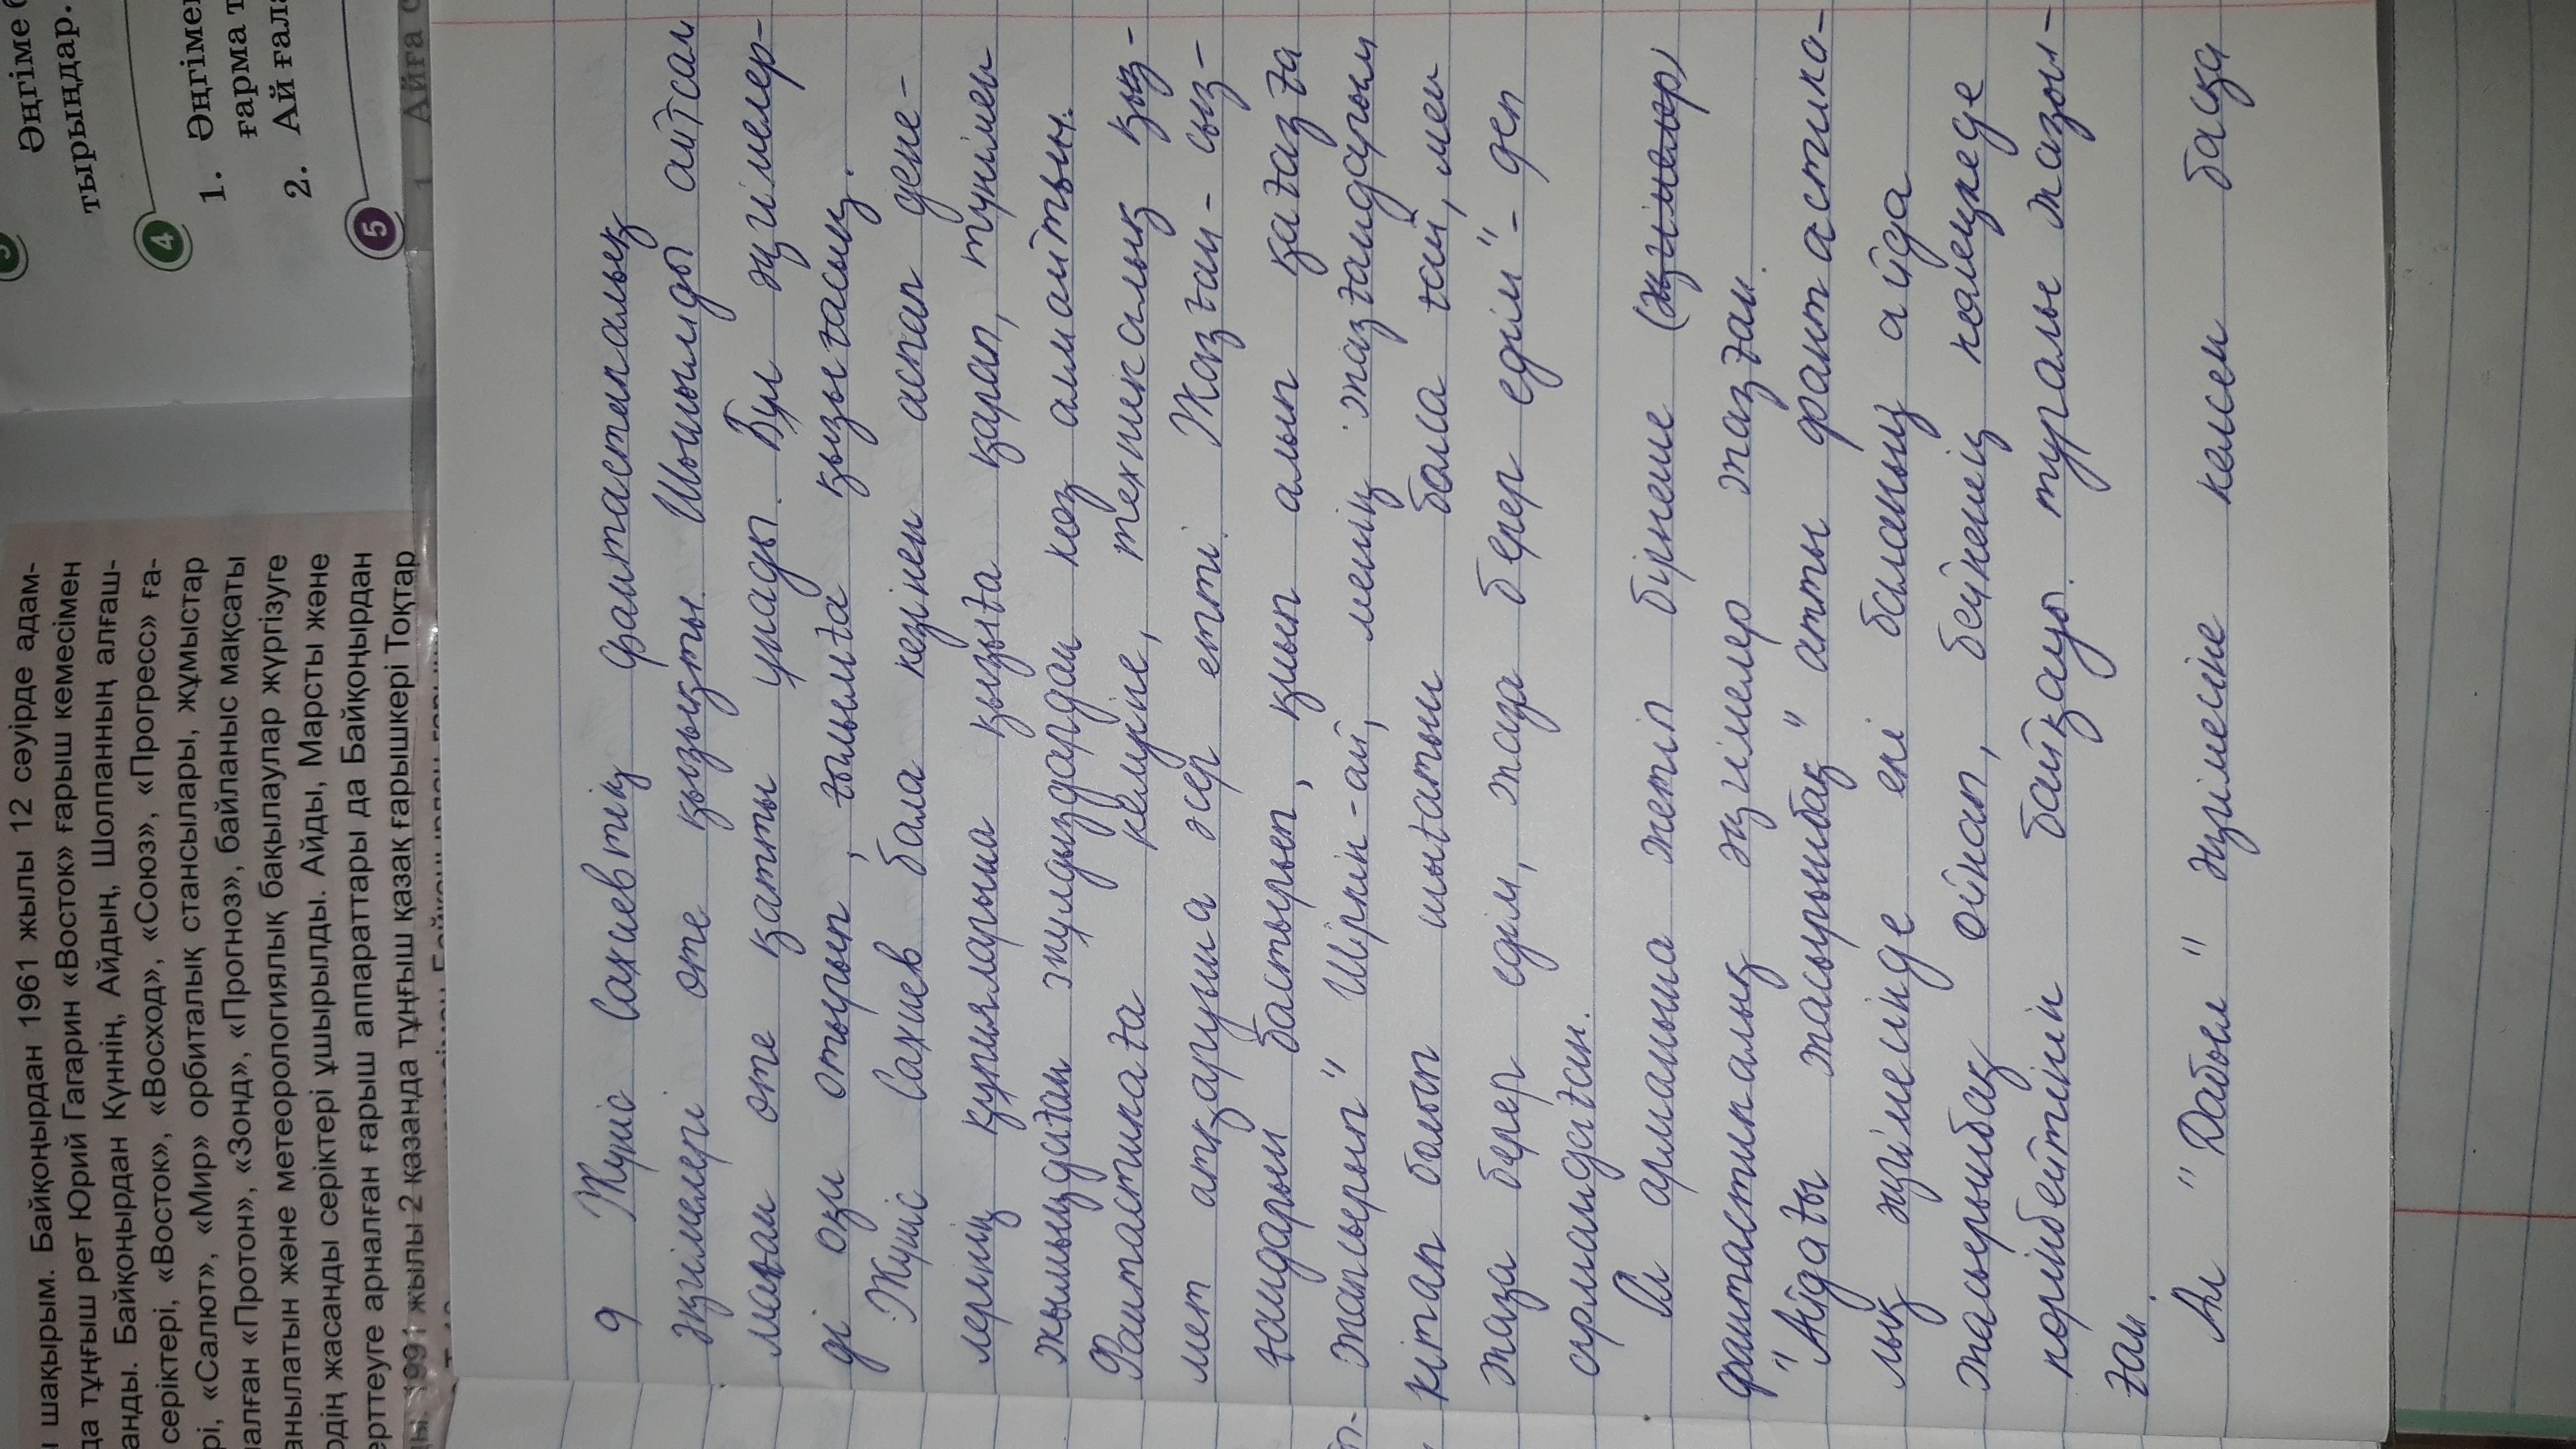 Әңгіме
тырыңдар.
4
1. Әңгіме
ғарма т
2. Ай ғал
5
1 Айға с
шақырым. Байқоңырдан 1961 жылы 12 сәуірде адам-
да тұңғыш рет Юрий Гагарин «Восток» ғарыш кемесімен
анды. Байқоңырдан Күннің, Айдың, Шолпанның алғаш-
серіктері, «Восток», «Восход», «Союз», «Прогресс» ға-
рі, «Салют», «Мир» орбиталық стансылары, жұмыстар
алған «Протон», «Зонд», «Прогноз», байланыс мақсаты
анылатын және метеорологиялық бақылаулар жүргізуге
рдің жасанды серіктері ұшырылды. Айды, Марсты және
ерттеуге арналған ғарыш аппараттары да Байқоңырдан
ды. 1991 жылы 2 қазанда тұңғыш қазақ ғарышкері Тоқтар
9 Жүніс Сахиевтің фантастикалық
әңгімелері өте қызықты. Шынымды айтсам
маған өте қатты ұнады. Бұл әңгімелер-
ді оқи отырып, ғылымға қызығасың.
Жүніс Сахиев бала кезінен аспан дене-
лерінің құпияларына қызыға қарап, түнімен
жымыңдаған жұлдыздардан көз алмайтын.
Фантастикаға келуіне, техникалық қыз-
мет атқаруына әсер етті. Жазған-сыз-
ғандарын бастырып, қиып алып қағазға
жапсырып "Шіркін-ай, менің жазғандарым
кітап болып шығатын бола ғой, мен
жаза берер едім, жаза берер едім"-деп
армандаған.
Ол арманына жетіп бірнеше (әңгімелер)
фантастикалық әңгімелер жазған.
"Айдағы жасырынбақ" атты фантастика-
лық әңгімесінде екі баланың айда
жасырынбақ ойнап, бейненің көлеңкеде
көрінбейтінін байқауы. туралы жазыл-
ған.
Ал "Дабыл" әңгімесіне келсем басқа